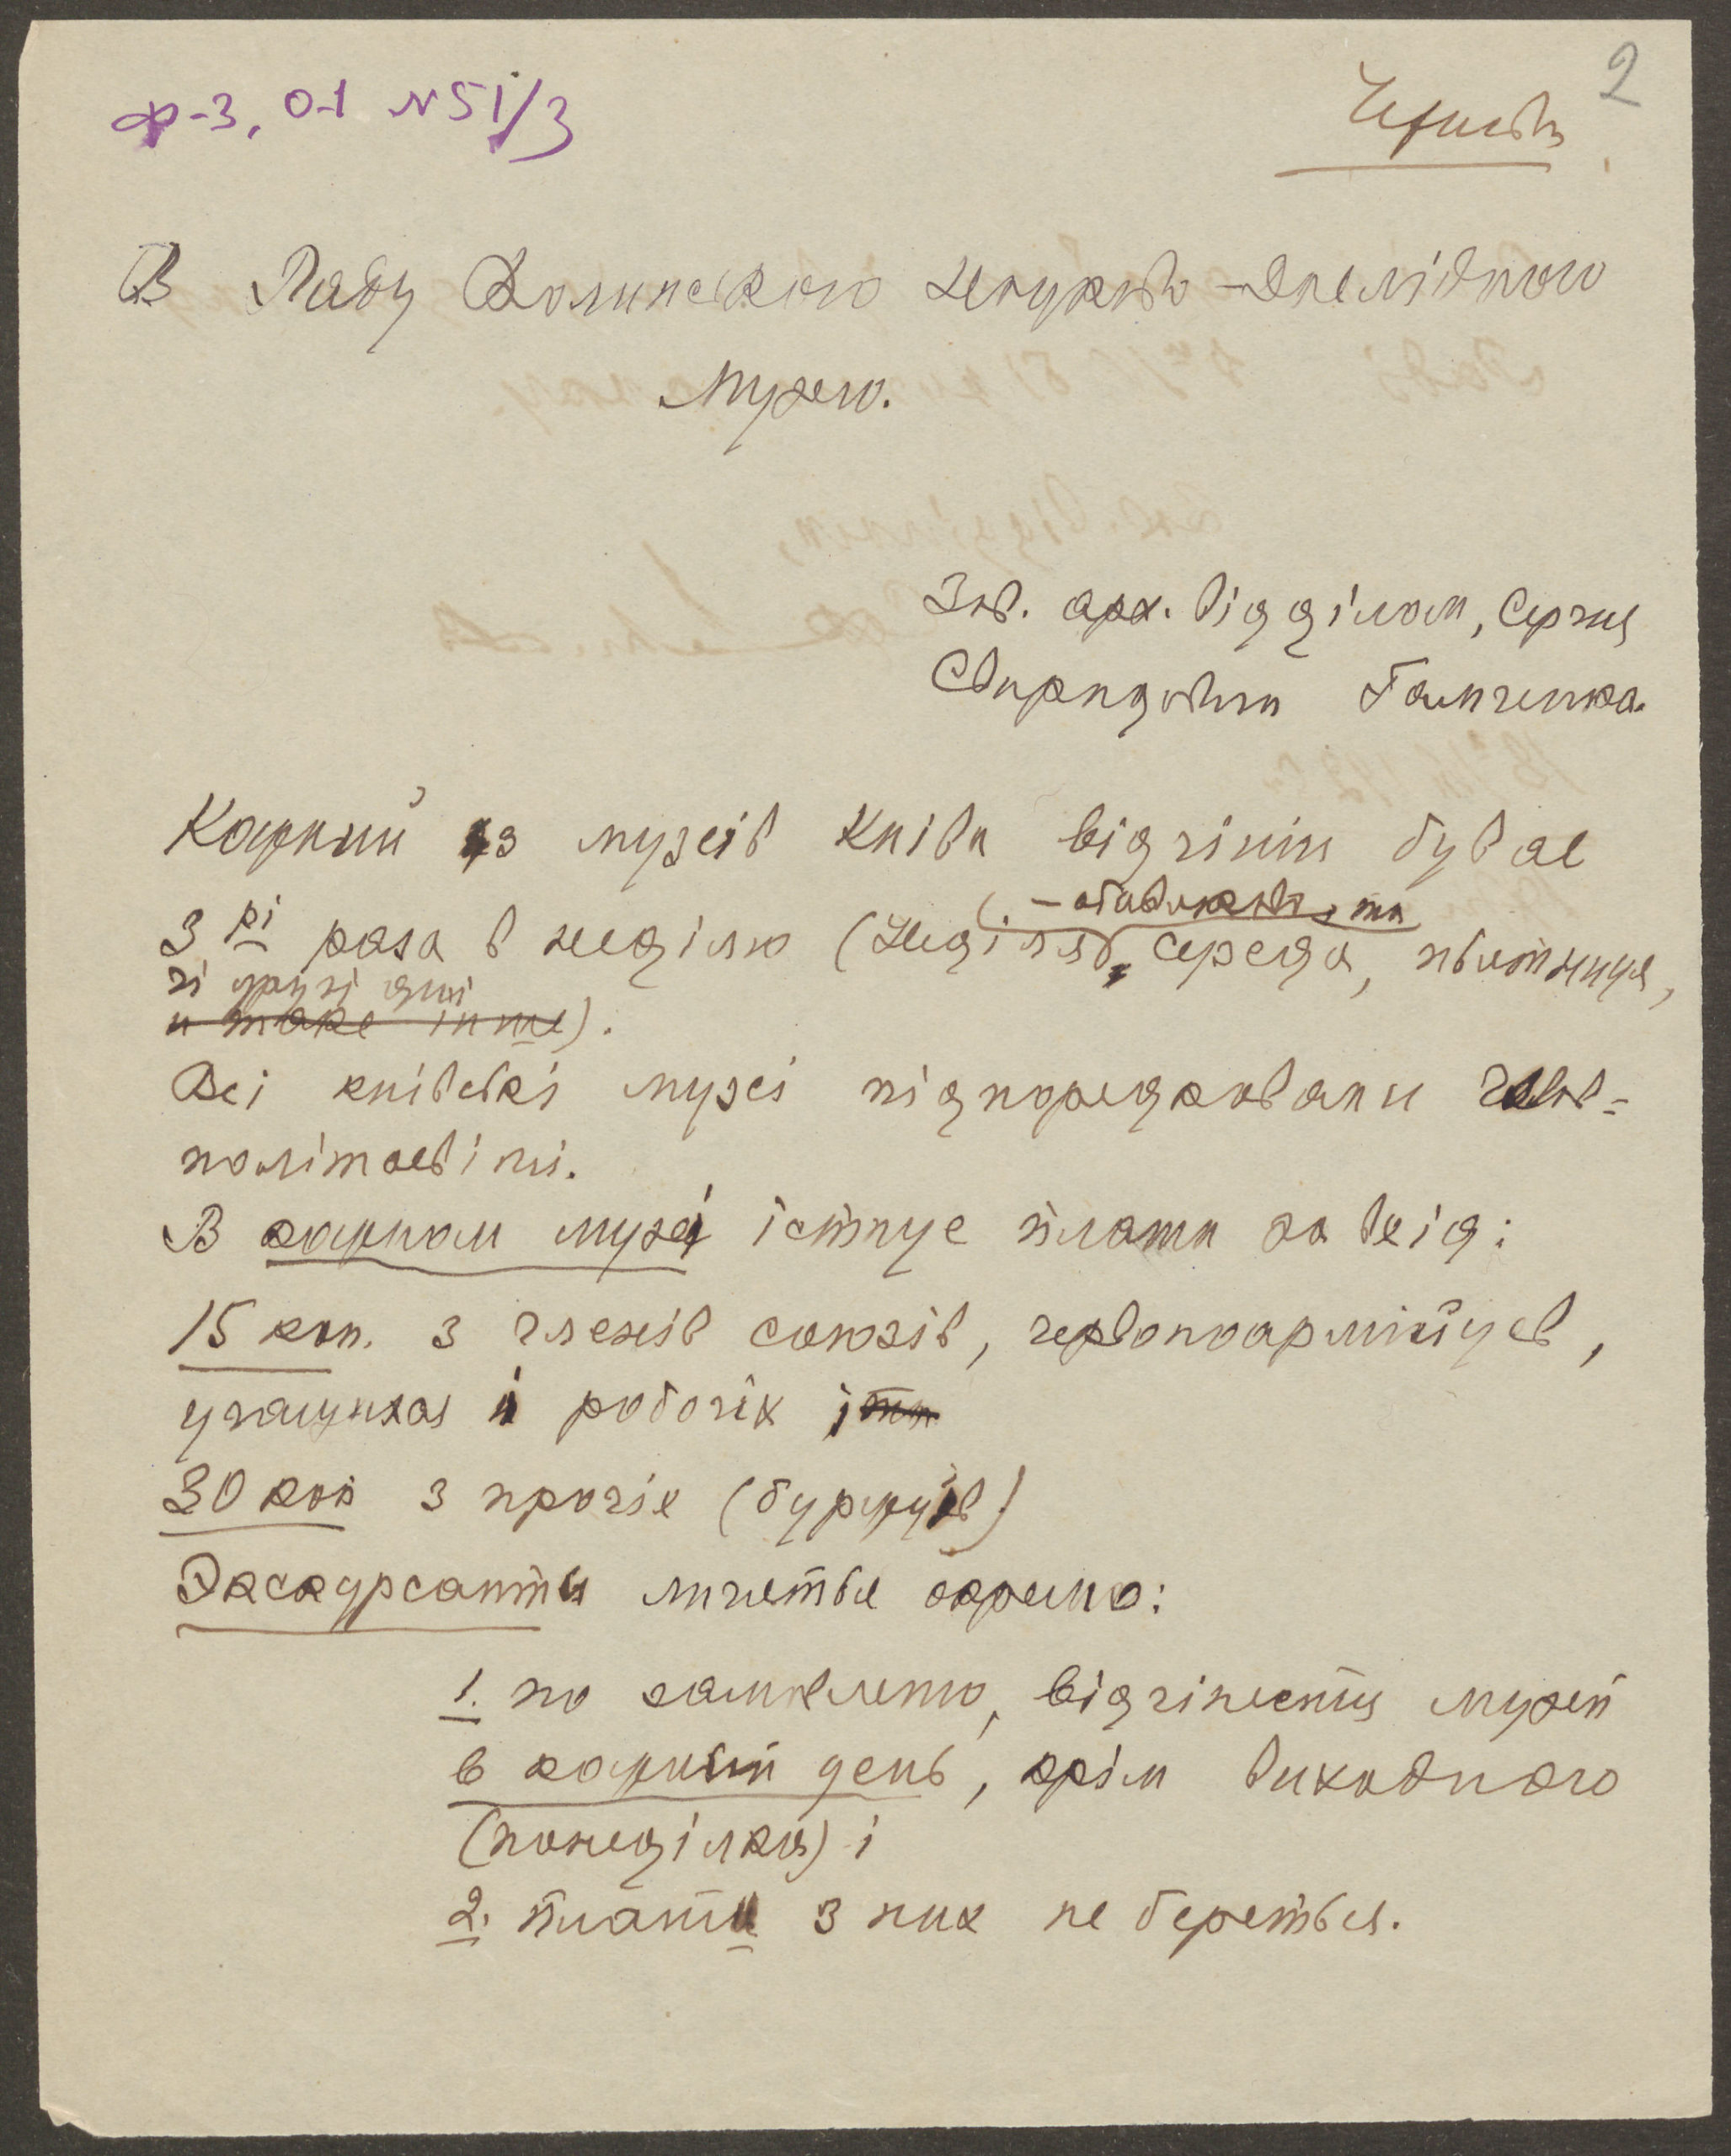 ф-3, О-1 №51/3
2
В Раду Волинського науково-дослідного
Музею.
Зав. арх. відділом, Сергія
Свиридовича Гамченка.
Кажний із музеів Киіва відчінін буває
3 рі раза в неділю (Неділя - обовязково, та середа, пьятниця,
чі другі дні
и таке інше).
Всі киівські музеі підпорядковани Голов-
політосвіти.
В кажном музеі істнує платня за вхід:
15 коп. з членів союзів, червоноармійців,
учащихся і робочіх
30 коп з прочіх (буржуів)
Экскурсанти личаться окремо:
1. по заявленю, відчінють музей
в кажний день, крім виходного
(понеділка) і
2. платні з них не береться.